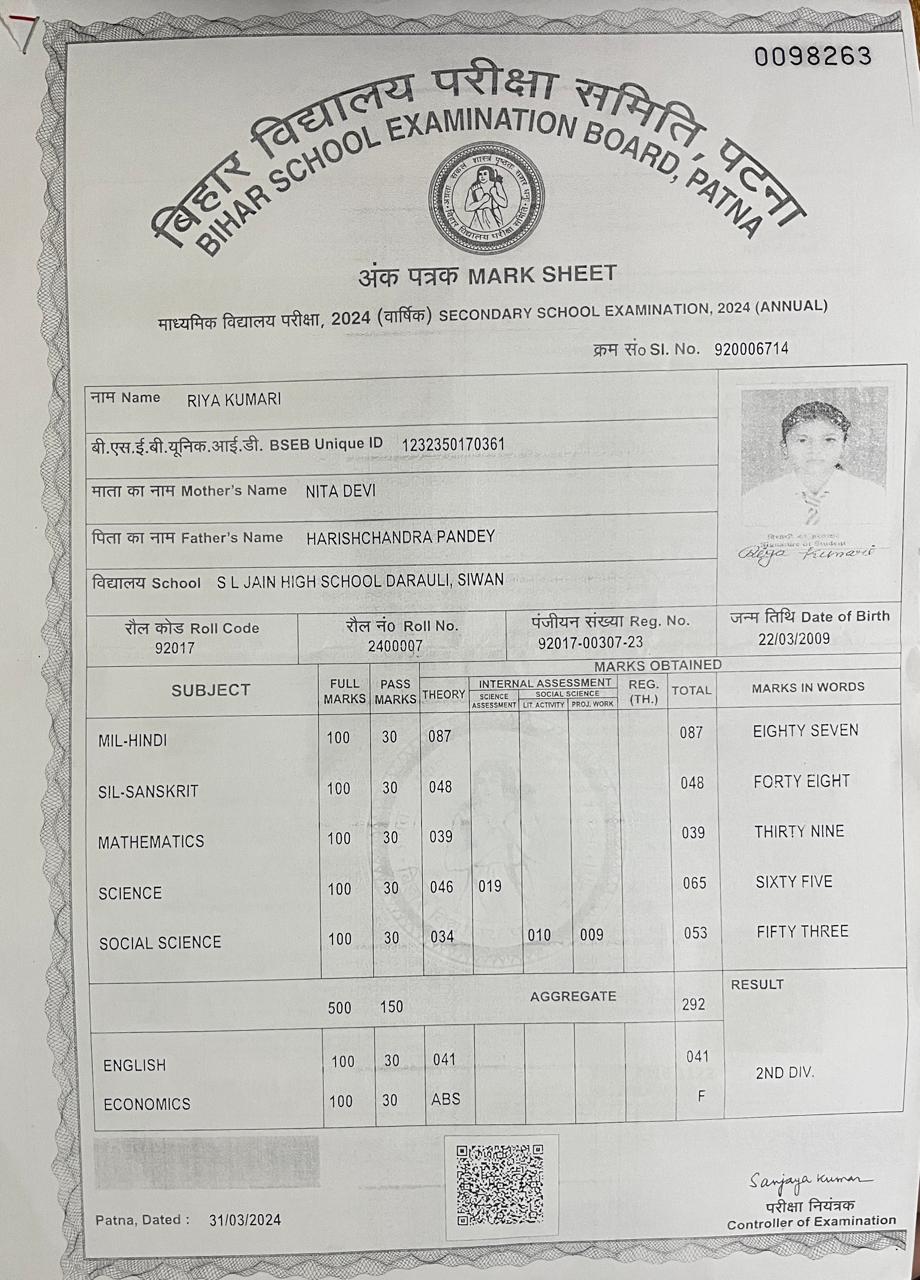 0098263
बिहार विद्यालय परीक्षा समिति, पटना
BIHAR SCHOOL EXAMINATION BOARD, PATNA
अंक पत्रक MARK SHEET
माध्यमिक विद्यालय परीक्षा, 2024 (वार्षिक) SECONDARY SCHOOL EXAMINATION, 2024 (ANNUAL)
क्रम सं० Sl. No. 920006714
नाम Name RIYA KUMARI
बी.एस.ई.बी.यूनिक.आई.डी. BSEB Unique ID 1232350170361
माता का नाम Mother's Name NITA DEVI
पिता का नाम Father's Name HARISHCHANDRA PANDEY
Signature of Student
Riya Kumari
विद्यालय School S L JAIN HIGH SCHOOL DARAULI, SIWAN
रौल कोड Roll Code रौल नं० Roll No. पंजीयन संख्या Reg. No. जन्म तिथि Date of Birth
92017 2400007 92017-00307-23 22/03/2009
MARKS OBTAINED
SUBJECT FULL MARKS PASS MARKS THEORY INTERNAL ASSESSMENT REG. (TH.) TOTAL MARKS IN WORDS
SCIENCE ASSESSMENT SOCIAL SCIENCE
LIT. ACTIVITY PROJ. WORK
MIL-HINDI 100 30 087 087 EIGHTY SEVEN
SIL-SANSKRIT 100 30 048 048 FORTY EIGHT
MATHEMATICS 100 30 039 039 THIRTY NINE
SCIENCE 100 30 046 019 065 SIXTY FIVE
SOCIAL SCIENCE 100 30 034 010 009 053 FIFTY THREE
500 150 AGGREGATE 292 RESULT
ENGLISH 100 30 041 041
2ND DIV.
ECONOMICS 100 30 ABS F
Patna, Dated : 31/03/2024
Sanjaya Kumar
परीक्षा नियंत्रक
Controller of Examination